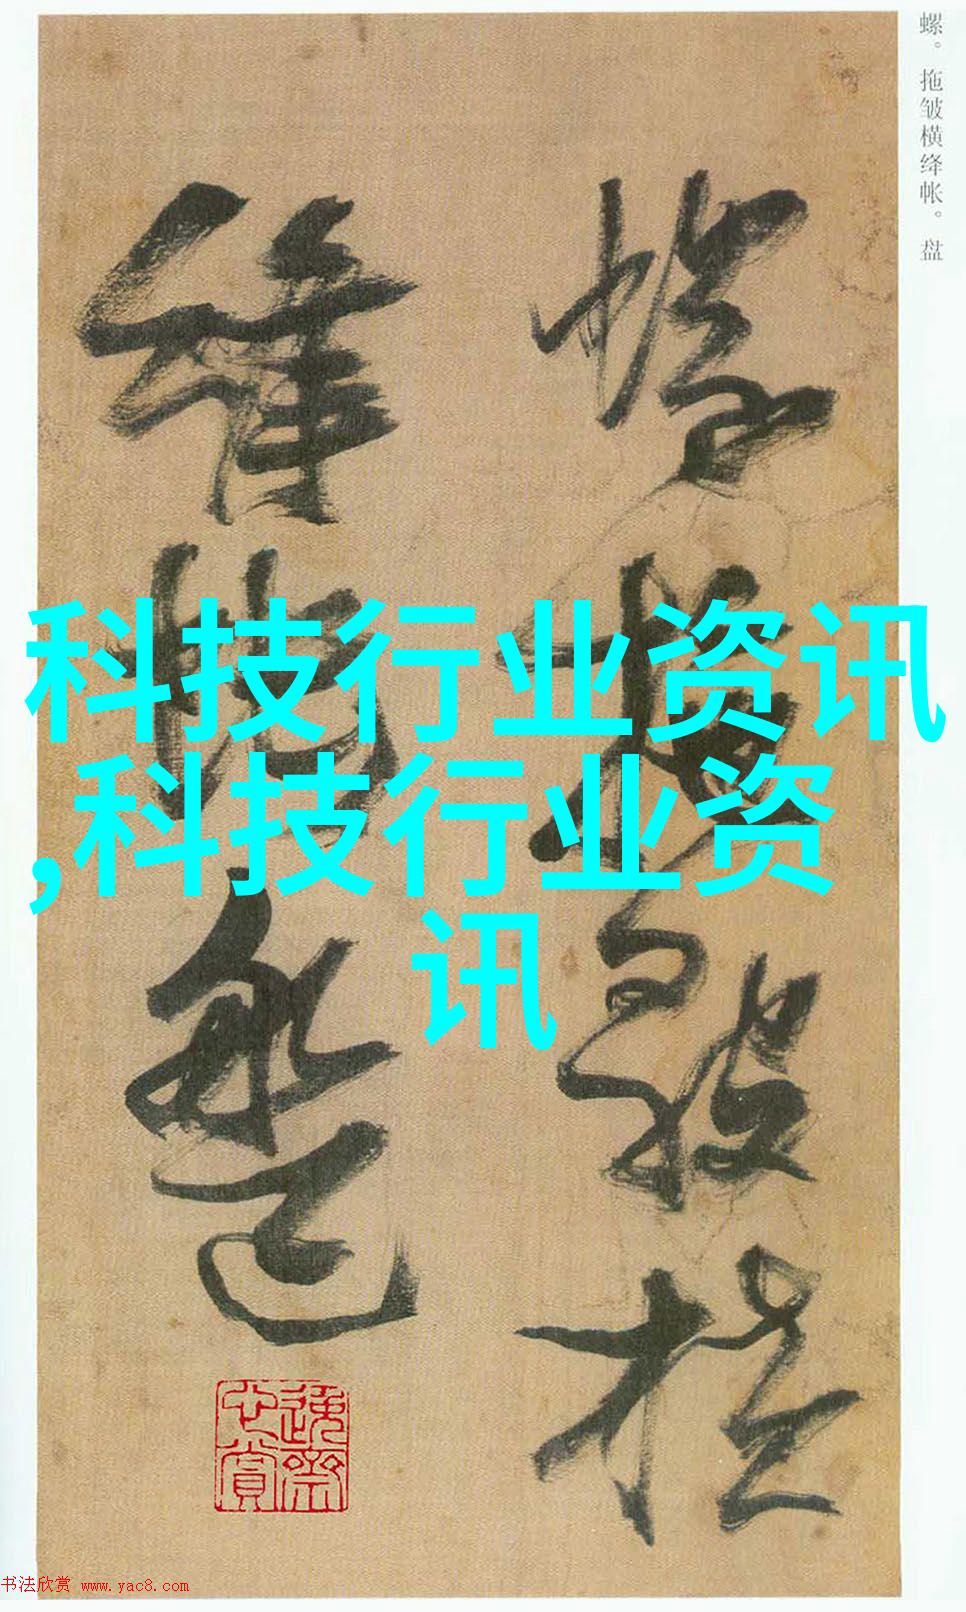 螺。拖皱横绛帐。盘
螺拖皱横
绛帐盘
科技行业资讯
,科技行业资
讯
书法欣赏 www.yac8.com